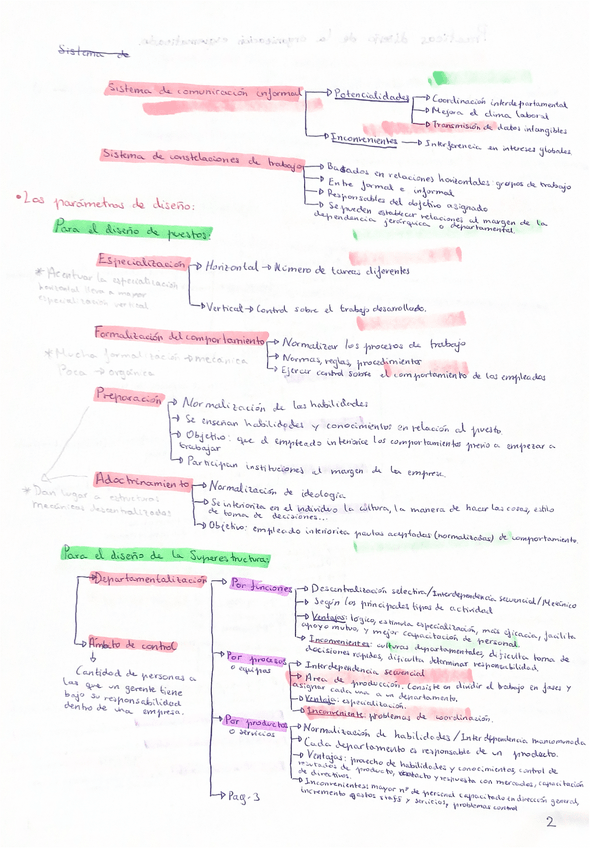 Sistema de
Sistema de comunicación informal
Potencialidades
Coordinación interdepartamental
Mejora el clima laboral
Transmisión de datos intangibles
Inconvenientes → Interferencia en intereses globales
Sistema de constelaciones de trabajo
Basados en relaciones horizontales: grupos de trabajo
Entre formal e informal
Responsables del objetivo asignado
Se pueden establecer relaciones al margen de la
dependencia jerárquica o departamental.
• Los parámetros de diseño:
Para el diseño de puestos:
Especialización → Horizontal → Número de tareas diferentes
* Acentuar la especialización
horizontal lleva a mayor
especialización vertical
Vertical → Control sobre el trabajo desarrollado.
Formalización del comportamiento
Normalizar los procesos de trabajo
Normas, reglas, procedimientos
Ejercer control sobre el comportamiento de los empleados
* Mucha formalización → mecánica
Poca → orgánica
Preparación
Normalización de las habilidades
Se enseñan habilidades y conocimientos en relación al puesto
Objetivo: que el empleado interiorice los comportamientos previo a empezar a
trabajar
Participan instituciones al margen de la empresa.
Adoctrinamiento
Normalización de ideología
Se interioriza en el individuo la cultura, la manera de hacer las cosas, estilo
de toma de decisiones...
Objetivo: empleado interiorice pautas aceptadas (normalizadas) de comportamiento.
* Dan lugar a estructuras
mecánicas descentralizadas
Para el diseño de la Superestructura:
Departamentalización
Por funciones
Descentralización selectiva/Interdependencia secuencial/Mecánico
Según los principales tipos de actividad
Ventajas: lógico, estimula especialización, más eficacia, facilita
apoyo mutuo, y mejor capacitación de personal.
Inconvenientes: culturas departamentales, dificulta toma de
decisiones rápidas, dificulta determinar responsabilidad.
Ámbito de control
Cantidad de personas a
las que un gerente tiene
bajo su responsabilidad
dentro de una empresa.
Por procesos
o equipos
Interdependencia secuencial
Área de producción. Consiste en dividir el trabajo en fases y
asignar cada una a un departamento.
Ventaja: especialización.
Inconveniente: problemas de coordinación.
Por productos
o servicios
Normalización de habilidades/Interdependencia mancomunada
Cada departamento es responsable de un producto.
Ventajas: provecho de habilidades y conocimientos, control de
resultados de producto, contacto y respuesta con mercados, capacitación
de directivos.
Inconvenientes: mayor nº de personal capacitado en dirección general,
incremento gastos staff y servicios, problemas control
Pag. 3
2